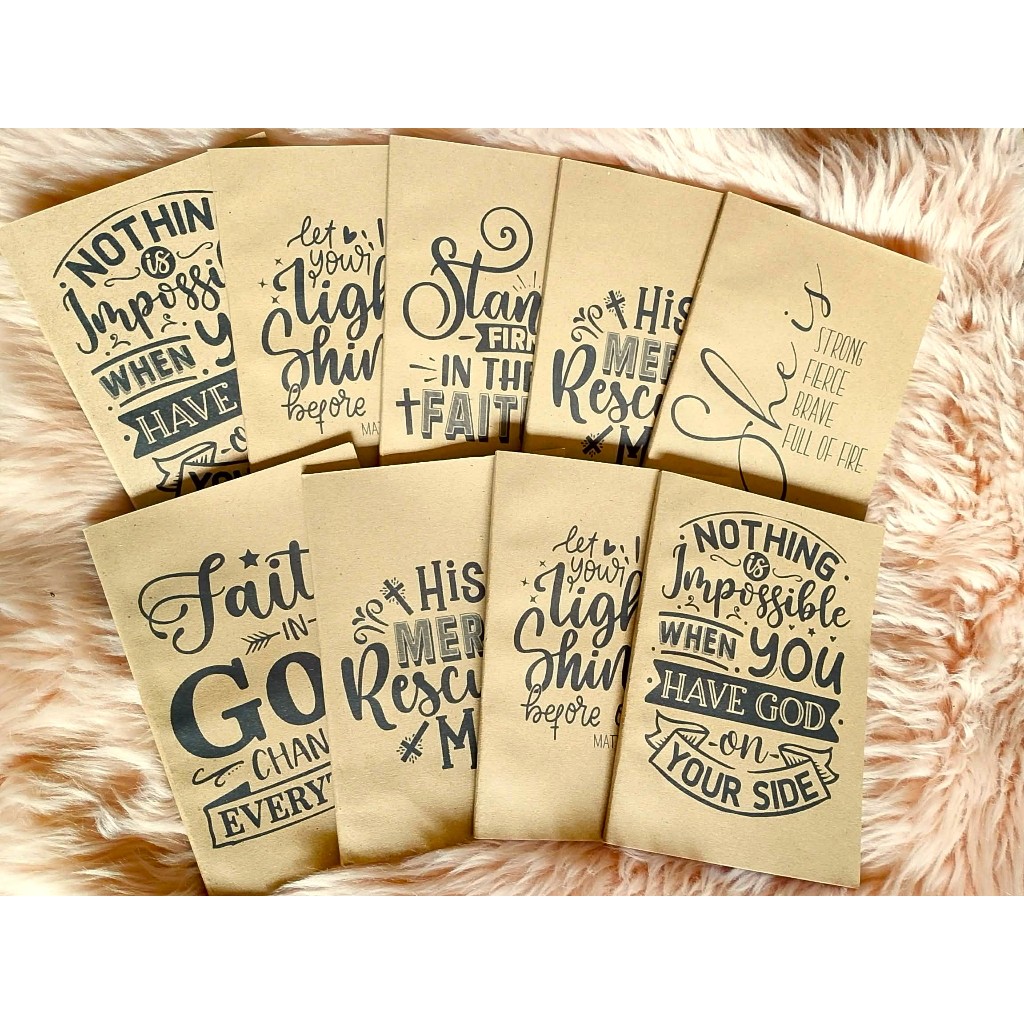 NOTHIN
is
Impossi
WHEN
HAVE
YOU
let
your
Ligh
Shin
before
MAT
Stan
FIRM
IN THE
FAIT
His
MER
Rescu
M
She is
STRONG
FIERCE
BRAVE
FULL OF FIRE
Fait
IN
GO
CHAN
EVERYT
His
MER
Rescu
M
let
your
Ligh
Shin
before
MAT
NOTHING
is
Impossible
WHEN YOU
HAVE GOD
on
YOUR SIDE